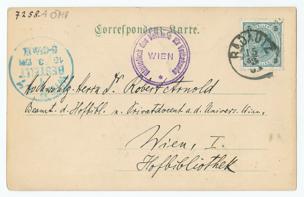 Correspondenz-Karte.
WIEN
RADAUTZ
Hochwohlg. Herrn Dr. Robert Arnold
Beamt. d. Hofbibl. u. Privatdocent a. d. Univers. Wien,
Wien, I.
Hofbibliothek